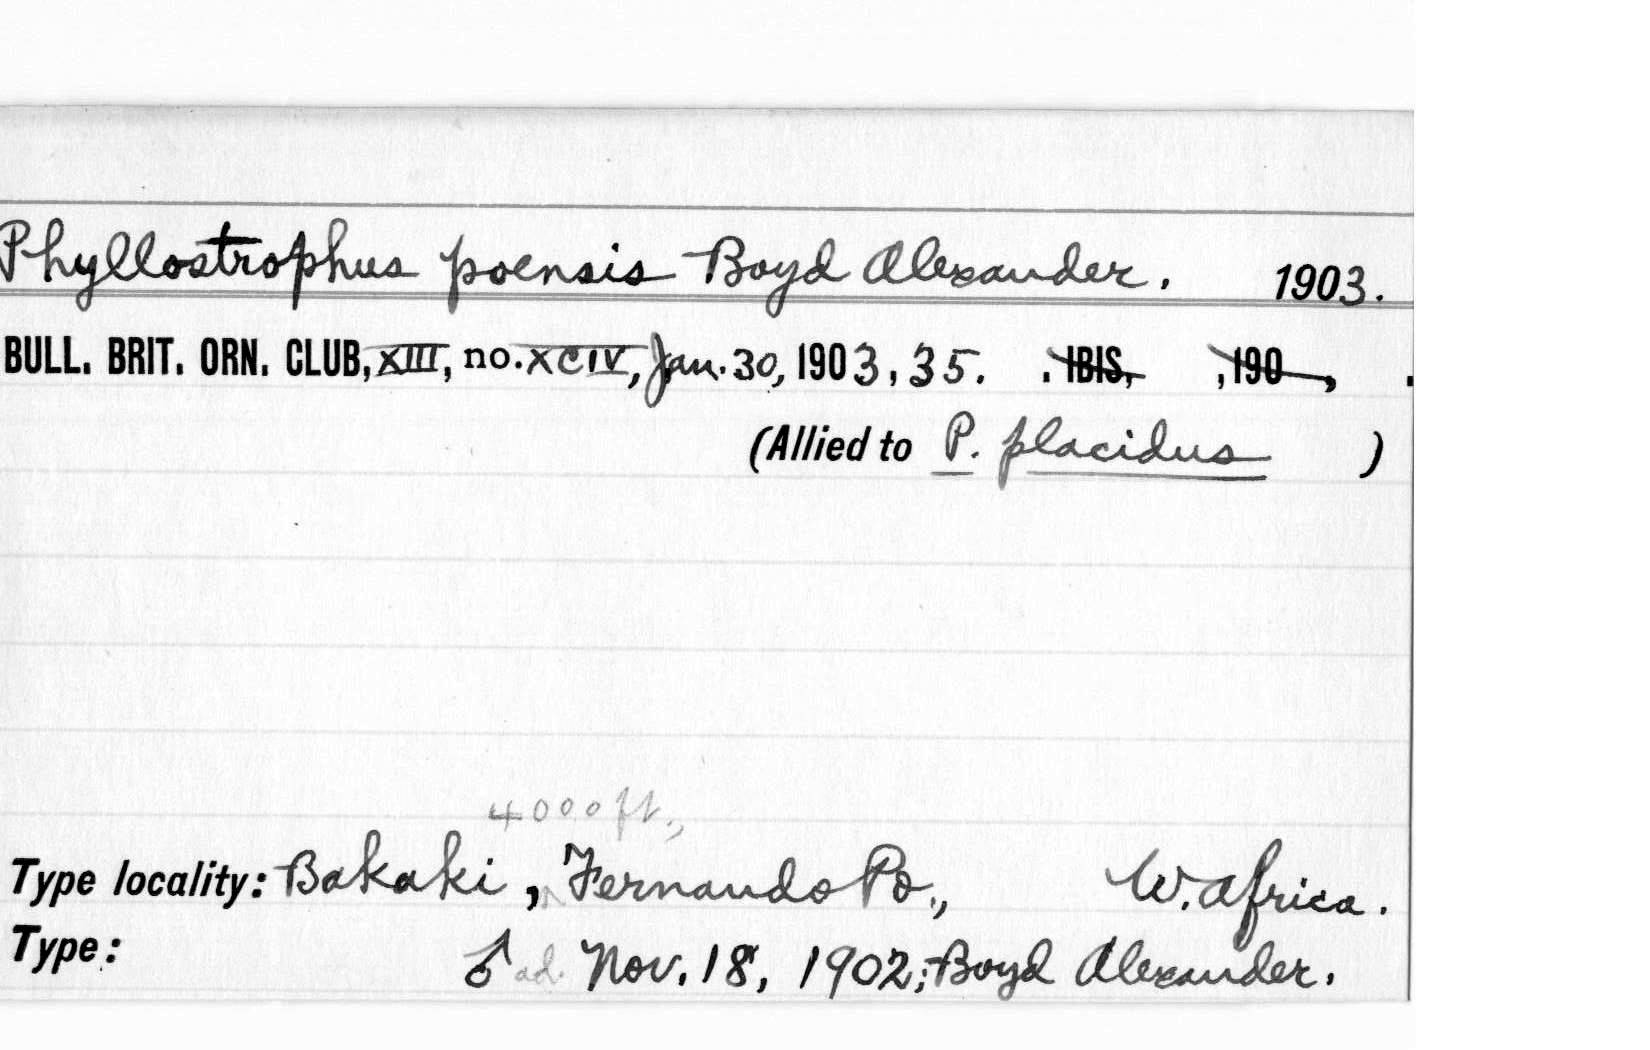 Phyllostrophus poensis Boyd Alexander. 1903.
BULL. BRIT. ORN. CLUB, XIII, no. XCIV, Jan. 30, 1903, 35. . IBIS, , 190 , .
(Allied to P. placidus )
4000 ft.,
Type locality: Bakaki, Fernando Po., W. Africa.
Type: ♂ ad. Nov. 18, 1902; Boyd Alexander.